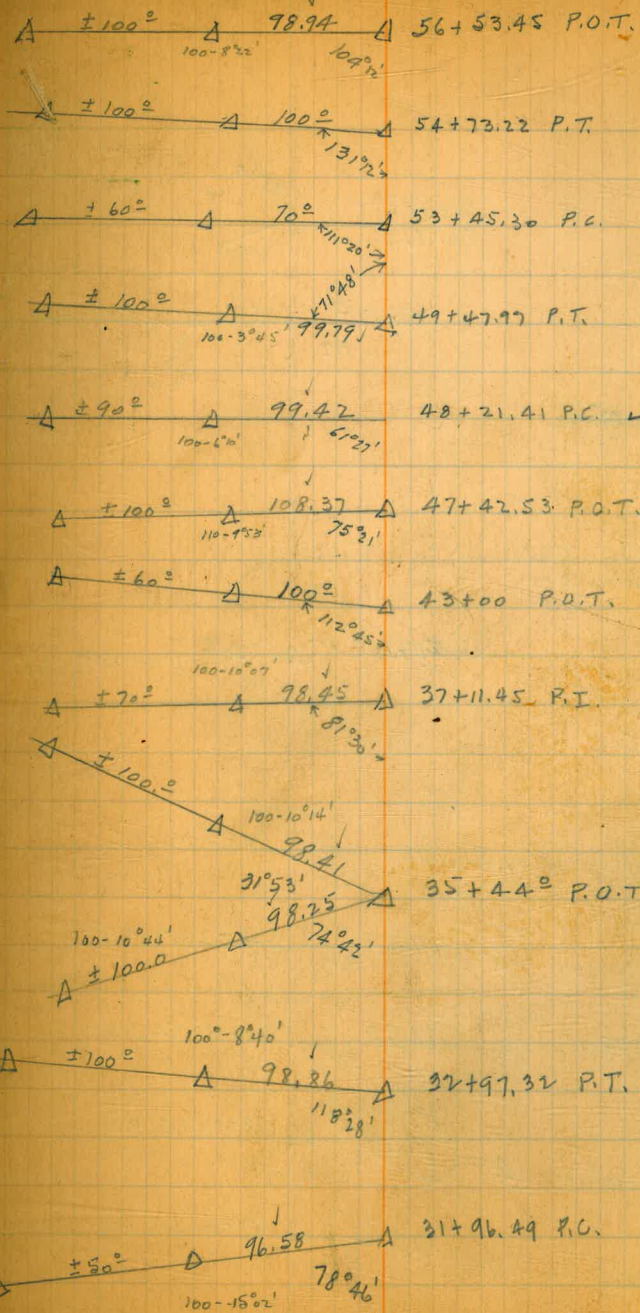 ± 100º 98.94 56+53.45 P.O.T.
100-8°22' 104°12'
± 100º 100º 54+73.22 P.T.
131°12'
± 60º 70º 53+45.30 P.C.
111°20'
71°48'
± 100º 49+47.97 P.T.
100-3°45' 99.79
± 90º 99.42 48+21.41 P.C.
100-6°10' 61°27'
± 100º 108.37 47+42.53 P.O.T.
110-9°53' 75°21'
± 60º 100º 43+00 P.O.T.
112°45'
100-10°07'
± 70º 98.45 37+11.45 P.I.
81°30'
± 100.º
100-10°14'
98.41
31°53' 35+44º P.O.T
98.25
100-10°44' 74°42'
± 100.0
100°-8°40'
± 100º 98.86 32+97.32 P.T.
118°28'
96.58 31+96.49 P.C.
± 50º 78°46'
100--15°02'